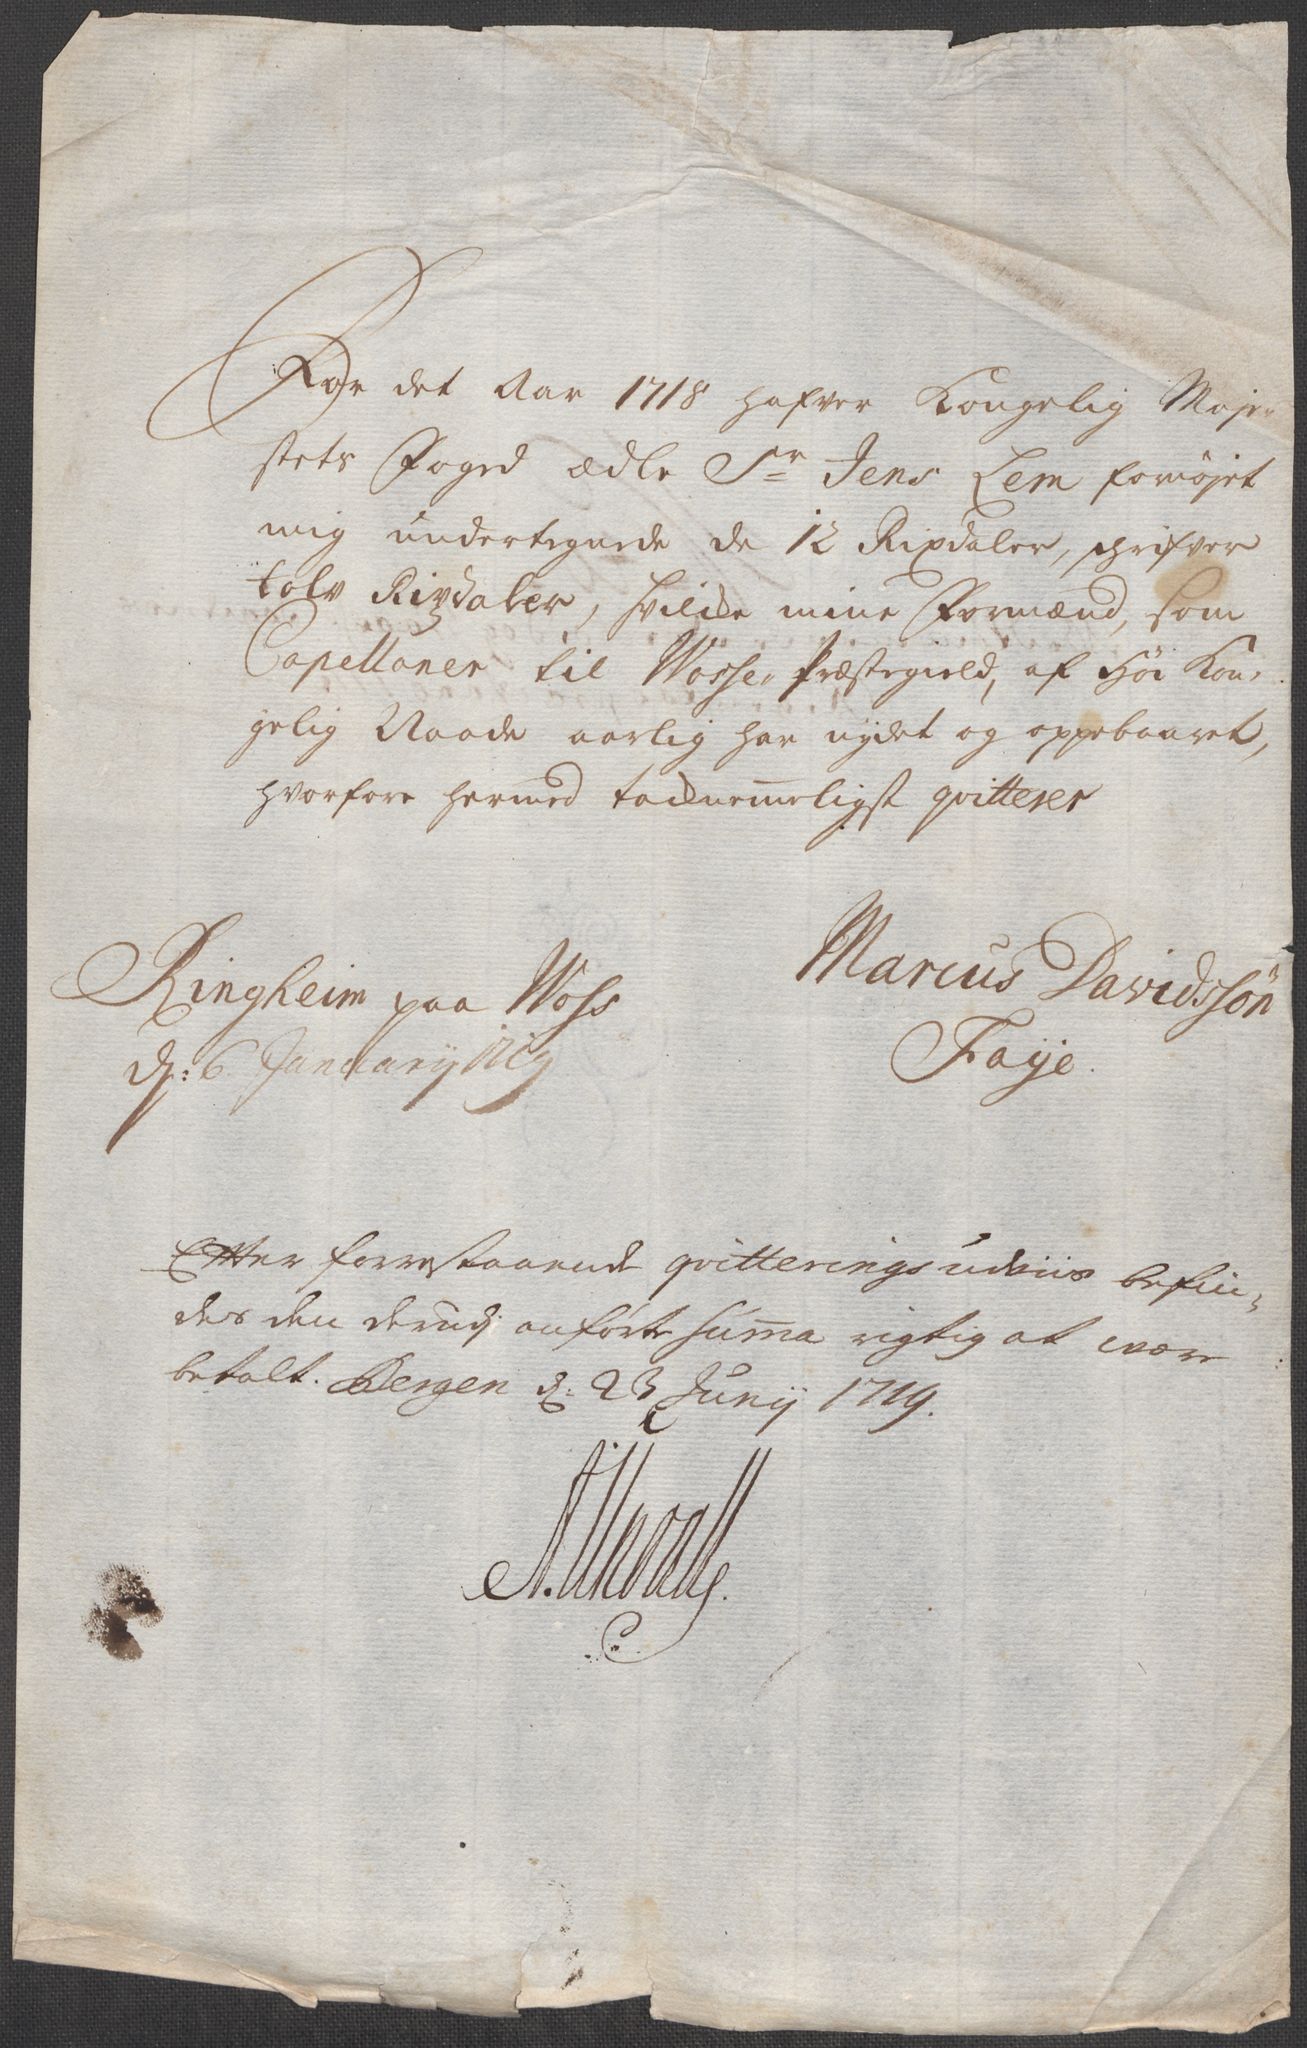 For det Aar 1718 hafver Kongelig Maje-
stets Foged ædle Sr Jens Lem fornöjet
mig underteignede de 12 Rixdaler, schrifver
tolv Rixdaler, hvilcke mine Formænd, som
Capellaner til Wosse- Præstegield, af Høi Kon-
gelig Naade aarlig har nydet og oppebaaret,
hvorfore hermed tacknemmeligst qvitterer
Ringheim paa Woss
d: 6 January 1719
Marcus Davidssön
Faÿe.
Efter forrestaaende qvitterings udviis befin-
des den derudj anförte Summa rigtig at være
betalt. Bergen d: 23 Junÿ 1719.